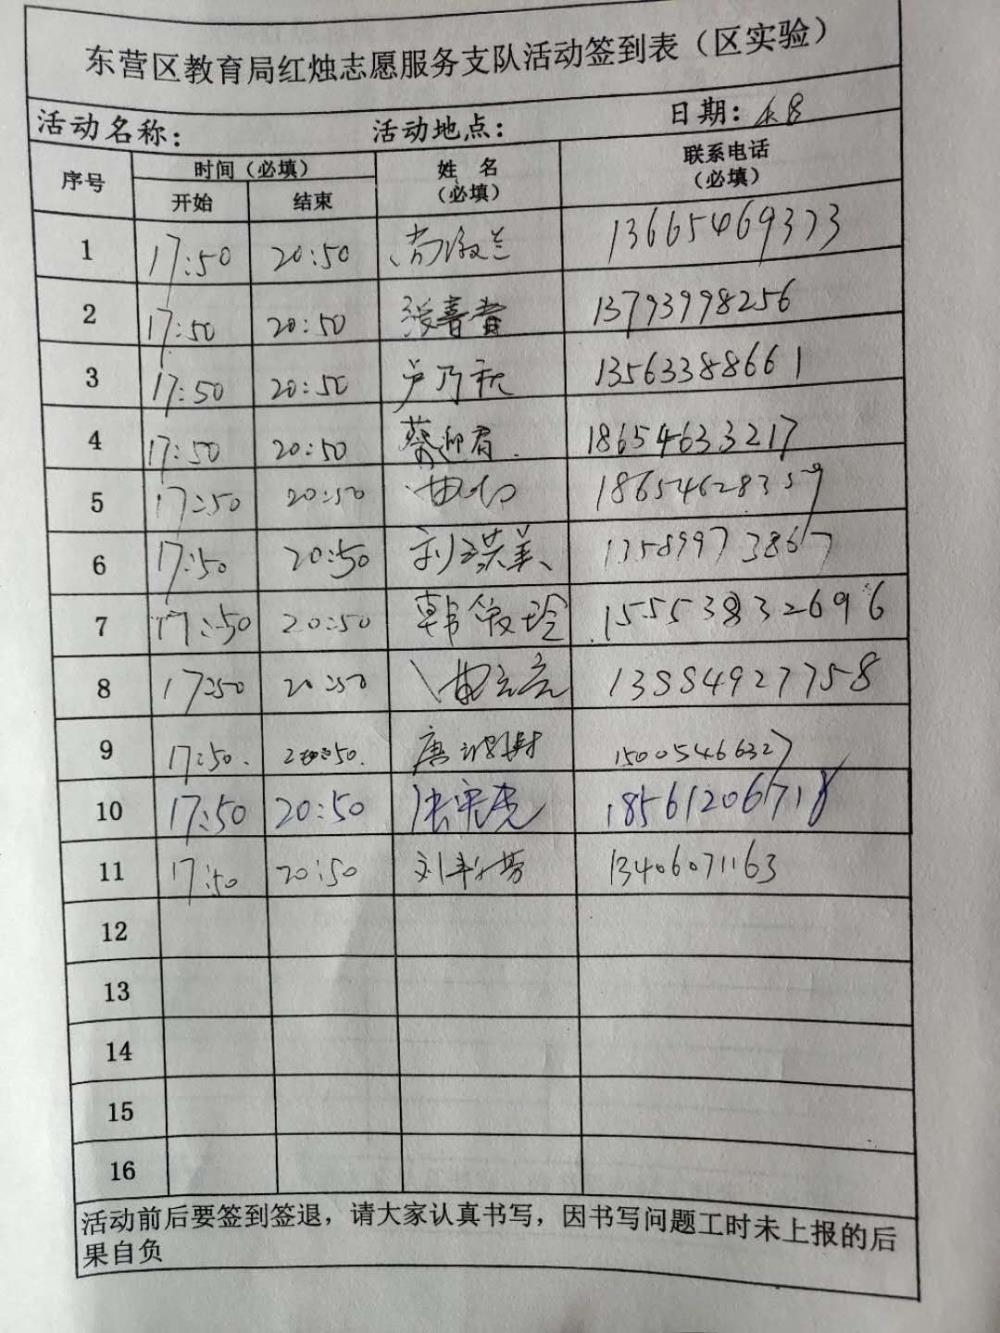 东营区教育局红烛志愿服务支队活动签到表（区实验）
活动名称： 活动地点： 日期：4.8
序号 时间（必填） 姓名（必填） 联系电话（必填）
开始 结束
1 17:50 20:50 13665469373
2 17:50 20:50 张春贵 13793998256
3 17:50 20:50 卢乃秋 13563388661
4 17:50 20:50 蔡迎君. 18654633217
5 17:50 20:50 18654628359
6 17:50 20:50 刘瑛美 13589973867
7 17:50 20:50 韩俊玲 15553832696
8 17:50 20:50 13884927758
9 17:50. 20:50. 唐 15005466327
10 17:50 20:50 18561206718
11 17:50 20:50 刘 13406071163
12
13
14
15
16
活动前后要签到签退，请大家认真书写，因书写问题工时未上报的后
果自负